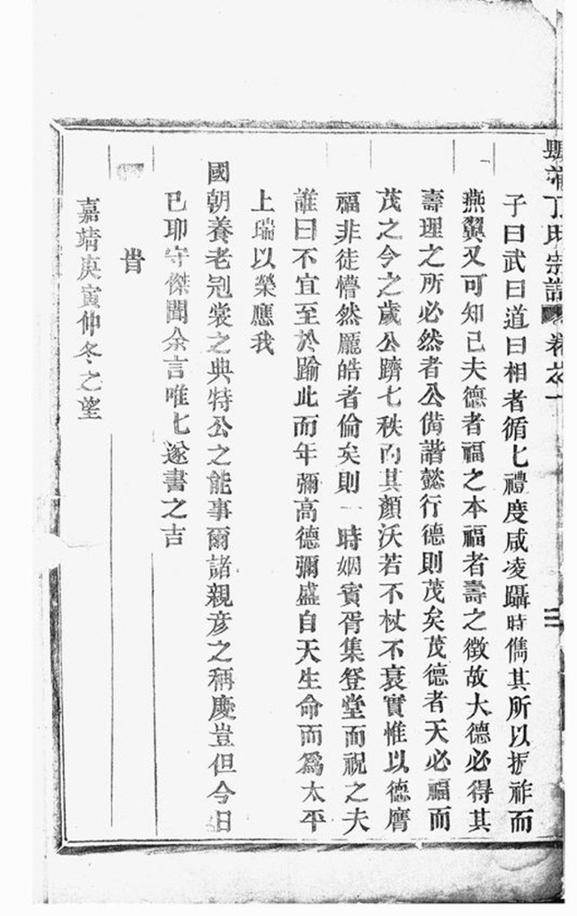 丁氏宗譜 卷之一 三
子曰武曰道曰相者循七禮度咸凌躡時儁其所以振祚而
燕翼又可知已夫德者福之本福者壽之徵故大德必得其
壽理之所必然者公備諧懿行德則茂矣茂德者天必福而
茂之今之歲公躋七秩而其顏沃若不杖不衰實惟以德膺
福非徒懵然厖皓者倫矣則一時姻賓胥集登堂而祝之夫
誰曰不宜至於踰此而年彌高德彌盛自天生命而爲太平
上瑞以榮應我
國朝養老冠裳之典特公之能事爾諸親彦之稱慶豈但今日
已耶守傑聞余言唯七遂書之吉
旹
嘉靖庚寅仲冬之望